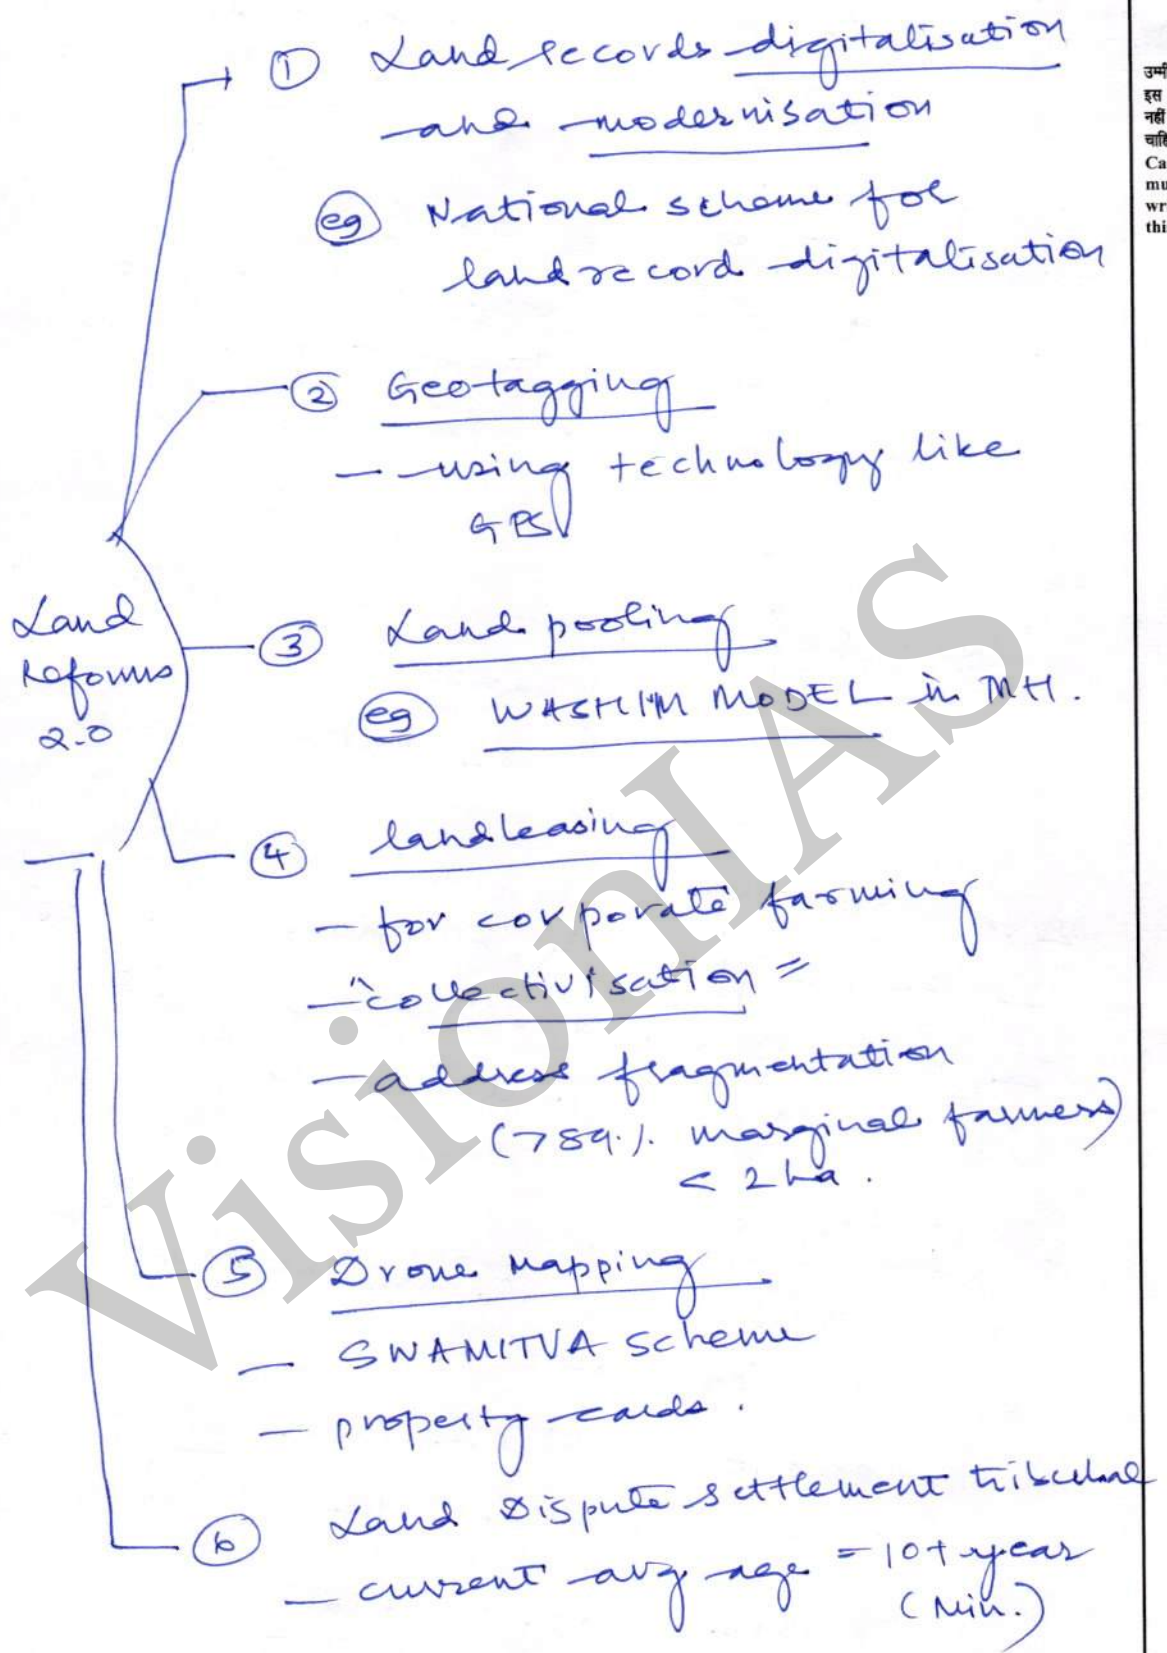 ① Land records digitalisation
and modernisation
eg National scheme for
land record digitalisation
② Geotagging
- using technology like
GPS
Land
Reforms
2.0
③ Land pooling
eg WASHIM MODEL in MH.
④ land leasing
- for corporate farming
- "collectivisation"
- address fragmentation
(>89%. marginal farmers)
< 2 ha.
⑤ Drone Mapping
- SWAMITVA scheme
- property cards.
⑥ Land Dispute settlement tribunal
- current avg age = 10+ year
(Min.)
उम्मी
इस
नहीं
चाहि
Ca
mu
wr
thi
VisionIAS